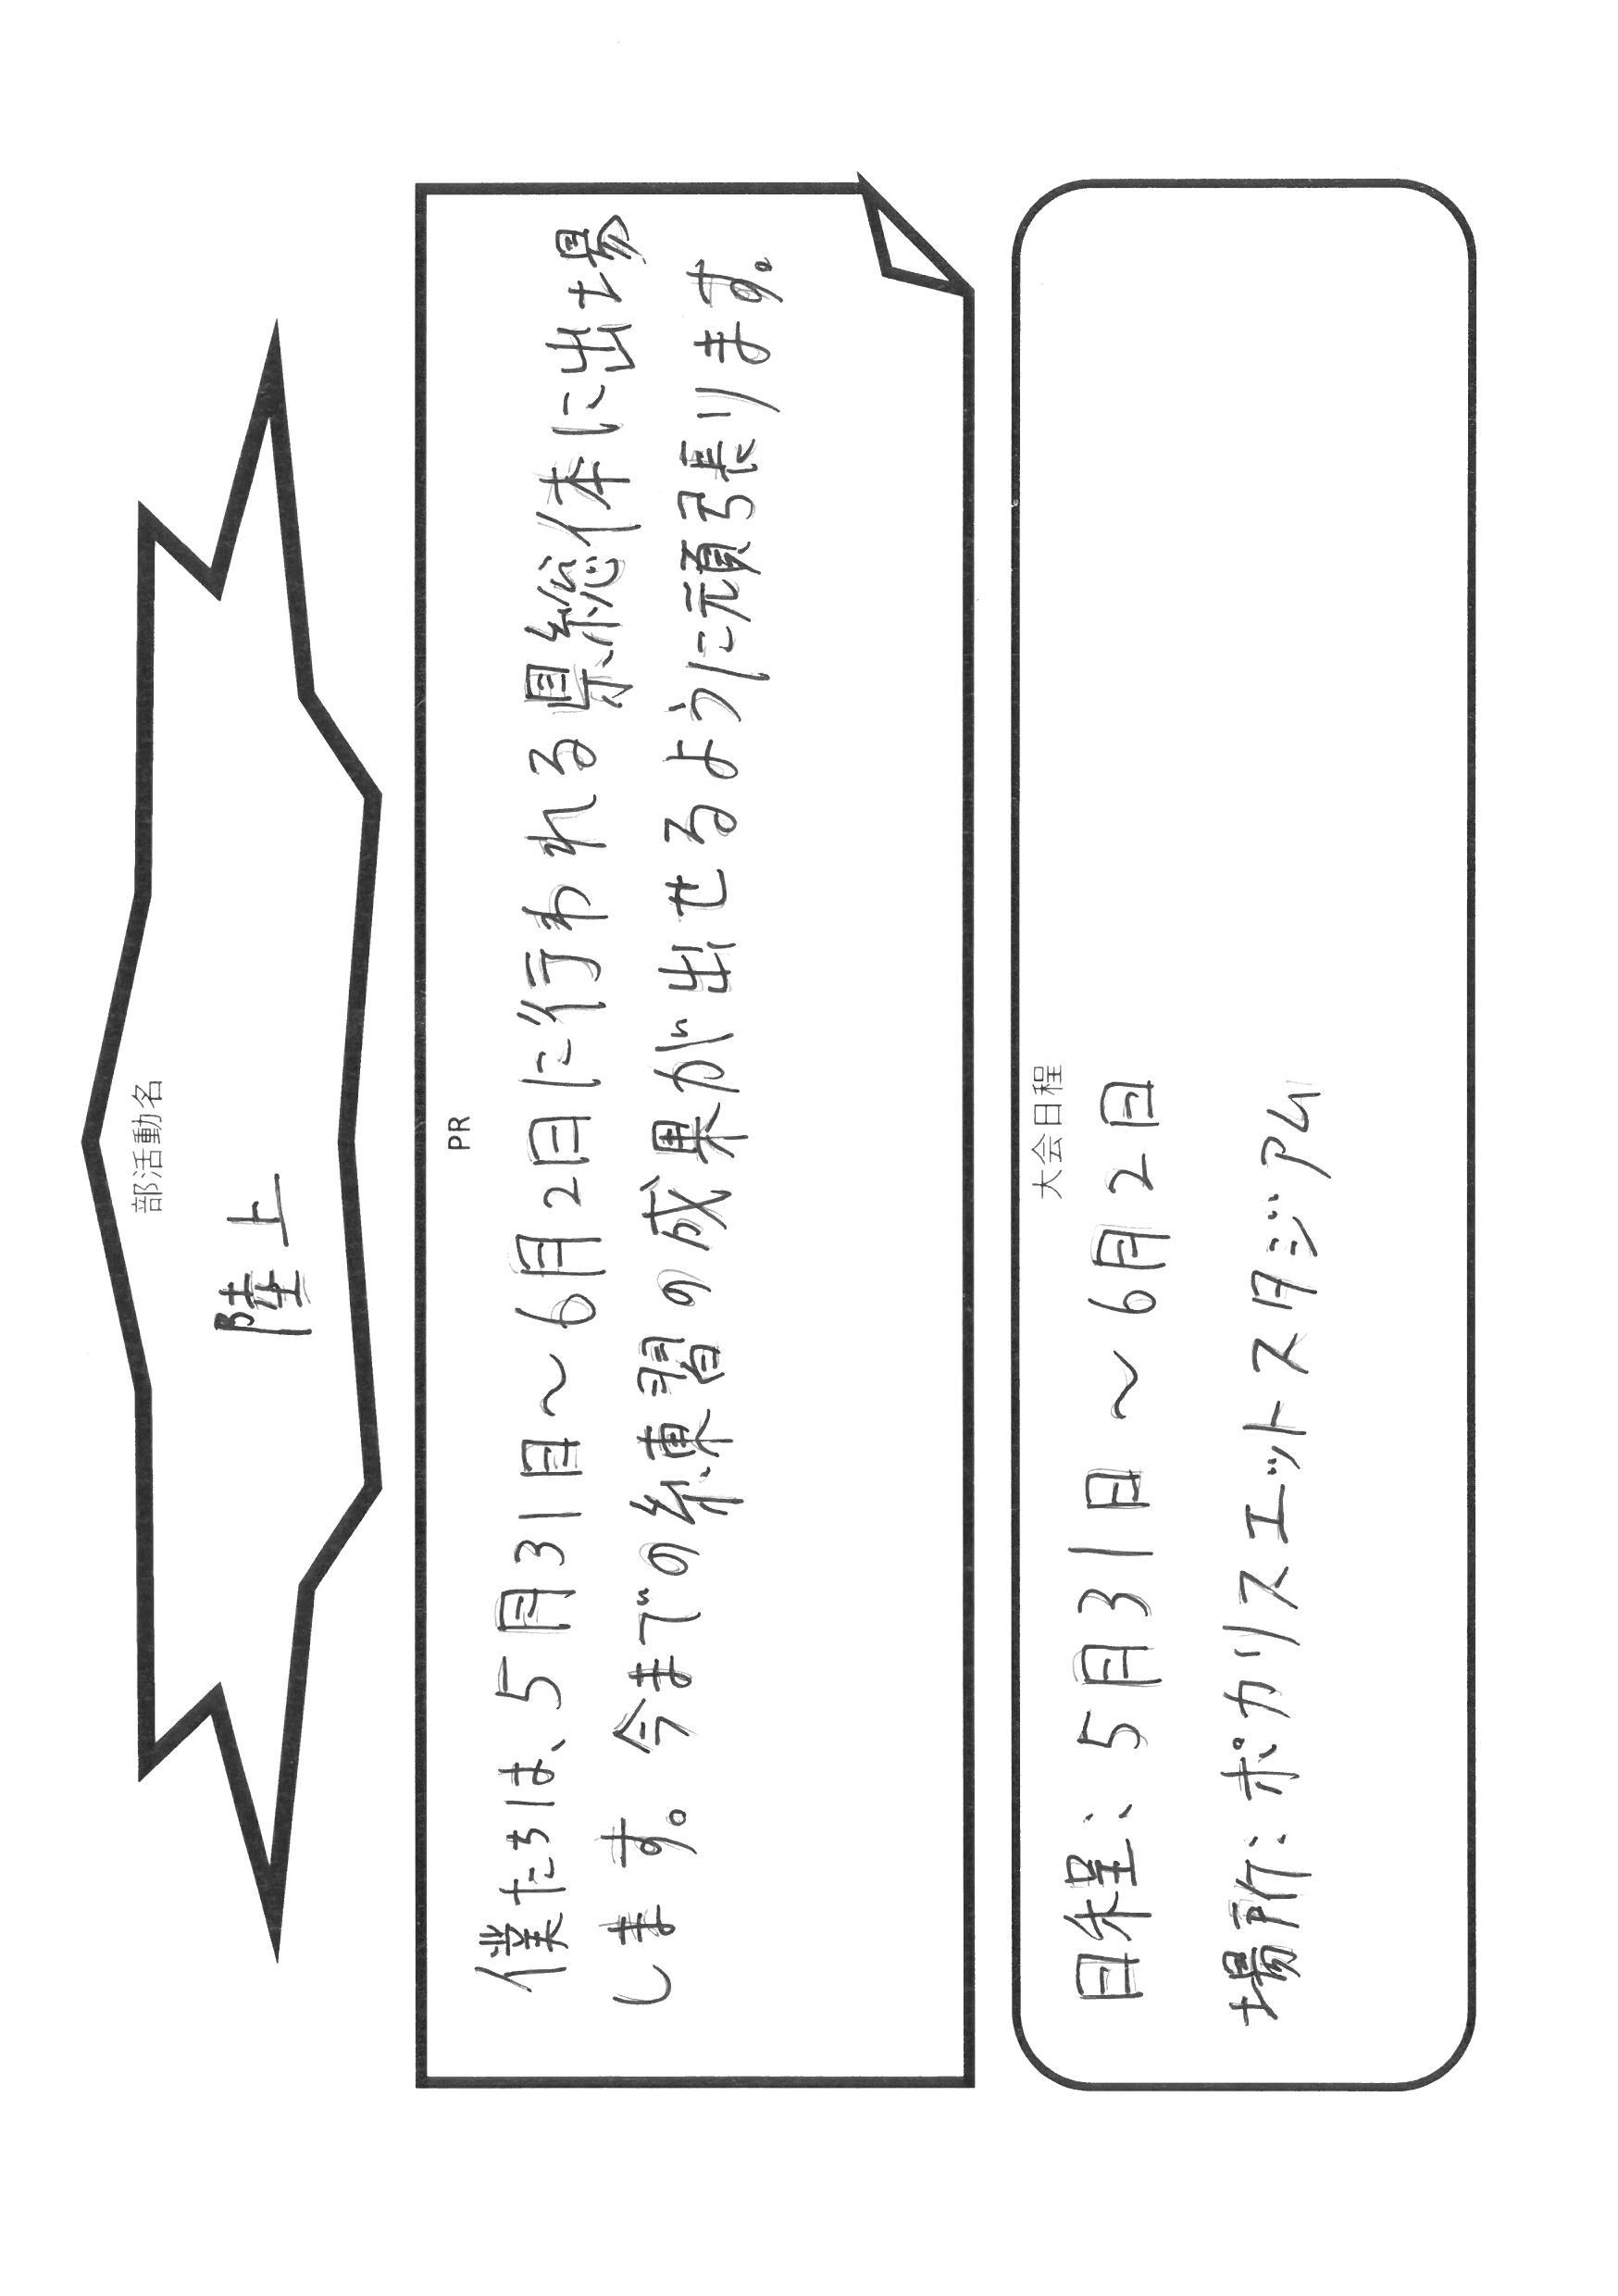 部活動名
陸上
PR
僕たちは、5月31日〜6月2日に行われる県総体に出場
します。今までの練習の成果が出せるように頑張ります。
大会日程
日程：5月31日〜6月2日
場所：ポカリスエットスタジアム